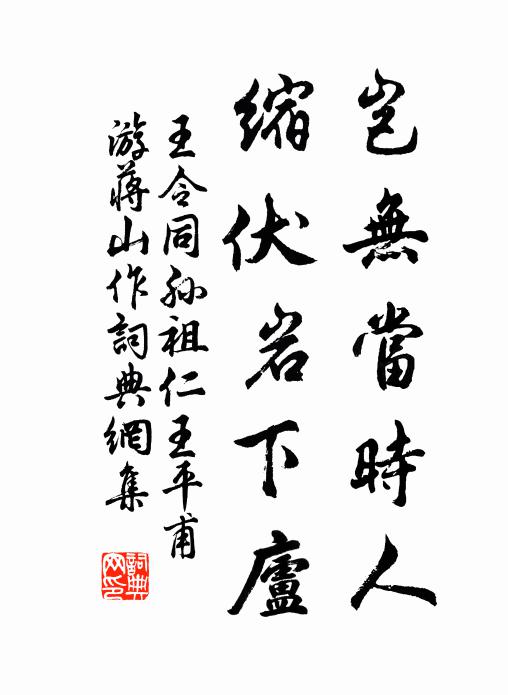 豈無當時人
縮伏岩下廬
王令同孙祖仁王平甫
游蔣山作詞典網集
詞典网印